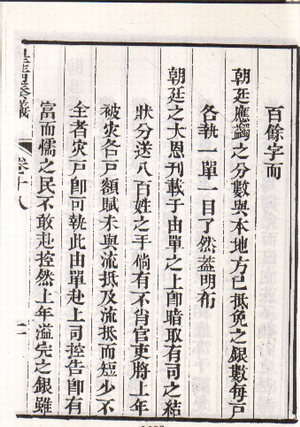 百餘字而
朝廷應蠲之分數與本地方已抵免之銀數每戸
各執一單一目了然蓋明布
朝廷之大恩刊載于由單之上卽暗取有司之結
狀分送入百姓之手倘有不肖官吏將上年
被灾各戸額賦未與流抵及流抵而短少不
全者灾戸卽可執此由單赴上司控告卽有
富而懦之民不敢赴控然上年溢完之銀雖
卷十八